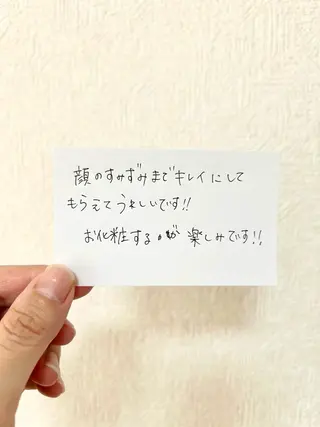 顔のすみずみまでキレイにして
もらえてうれしいです!!
お化粧するのが楽しみです!!